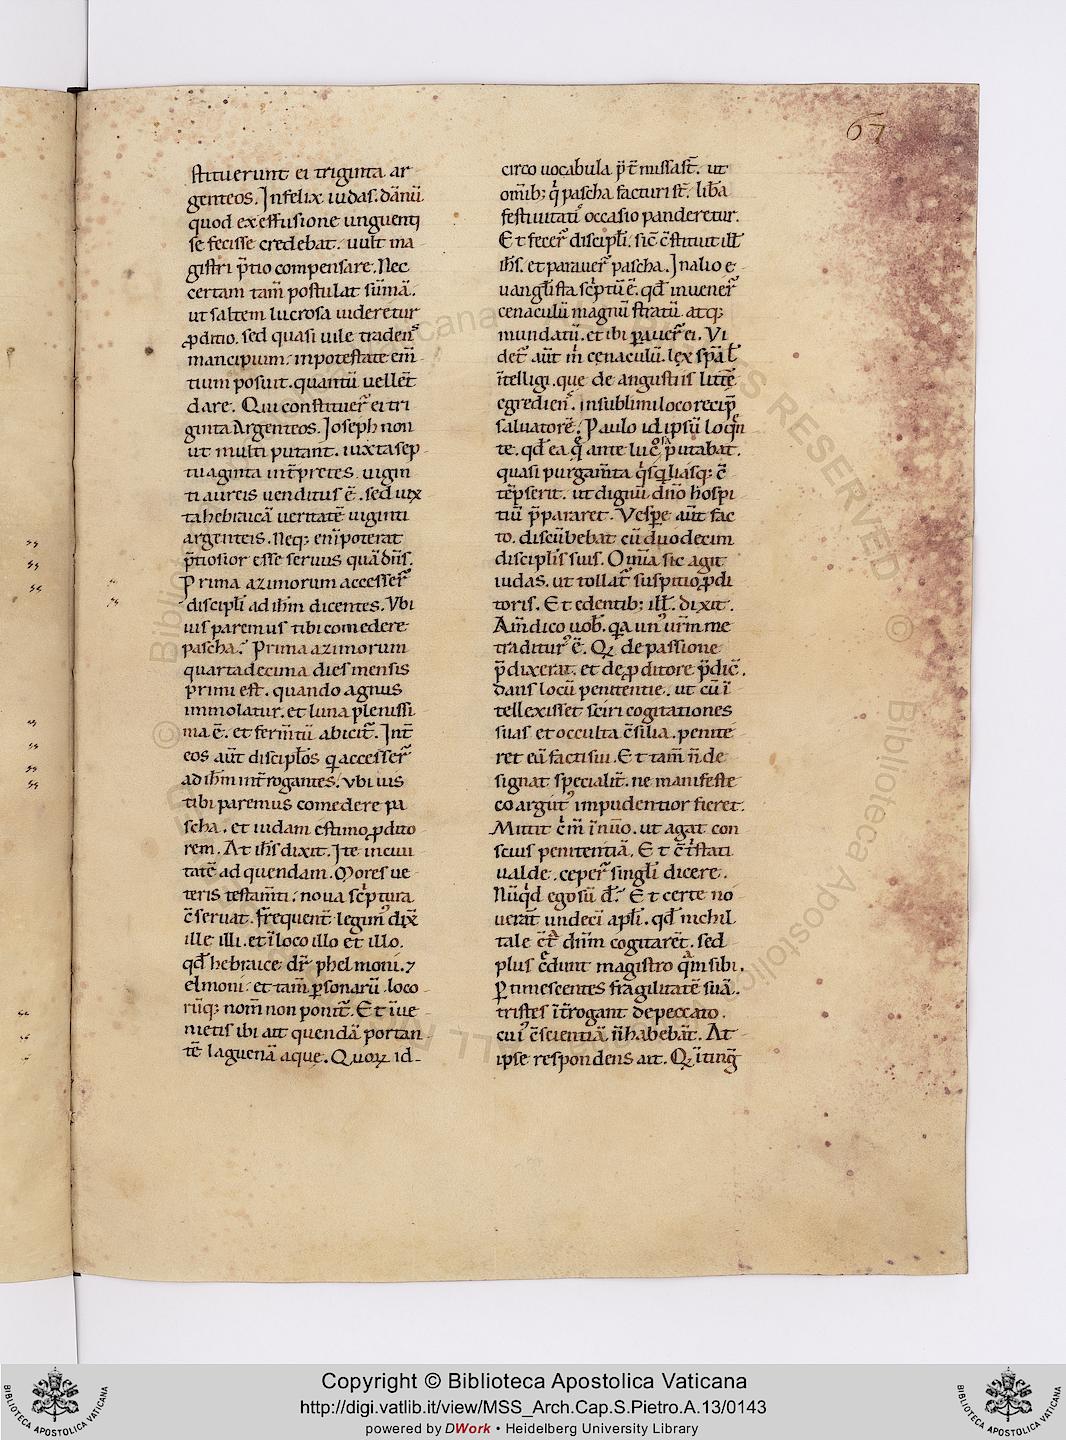 67
stituerunt ei triginta ar
genteos. Infelix iudas. dānū
quod ex effusione unguenti
se fecisse credebat. uult ma
gistri p̄tio compensare. Nec
certam tam̄ postulat sūmā.
ut saltem lucrosa uideretur
ꝓditio. sed quasi uile tradens
mancipium. inpotestate em̄
tium posuit. quantū uellet
dare. Qui constituer̄ ei tri
ginta Argenteos. Ioseph non
ut multi putant. iuxta sep
tuaginta int̄pretes. uigin
ti aureis uenditus ē. sed iux
ta hebraicā ueritatē uiginti
argenteis. Neq; eni poterat
p̄tiosior esse seruus quā dn̄s.
Prima azimorum accesser̄
discipl̄i ad ihm̄ dicentes. Vbi
uis paremus tibi comedere
pascha. Prima azimorum
quartadecima dies mensis
primi est. quando agnus
immolatur. et luna plenissi
ma ē. et ferm̄tū abicit̄. Int̄
eos aūt discipl̄os qui accesser̄
ad ihm̄ int̄rogantes. Vbi uis
tibi paremus comedere pa
scha. et iudam estimo ꝓdito
rem. At ih̄s dixit. Ite in ciui
tatē ad quendam. Mores ue
teris testam̄ti. noua scptura
c̄seruat. frequent̄ legim̄ dix̄
ille illi. et ī loco illo et illo.
qd̄ hebraice dr̄ phelmoni. ⁊
elmoni. et tam̄ ꝑsonarū loco
rūq; nom̄ non ponit̄. Et īue
nietis ibi ait quendā portan
tē laguenā aque. Quoꝝ id
circo uocabula p̄t̄missa st̄. ut
omīb; q̄ pascha facturi st̄. lib̄a
festiuitatis occasio panderetur.
Et fecer̄ discipl̄i. sic̄ c̄stituit ill̄
ih̄s. et parauer̄ pascha. In alio e
uangl̄ista scptū ē. qd̄ inuener̄
cenaculū magnū stratū. atq;
mundatū. et ibi p̄auer̄ ei. Vi
det̄ aūt m̄ cenaculū. lex sp̄al̄
īntelligi. que de angustiis litt̄e
egrediens. in sublimi loco recip̄
saluatorē. Paulo id ipsū loq̄n
te. qd̄ ea q̄ ante lucra putabat.
quasi purgam̄ta q̄sqliasq; c̄
tēpserit. ut dignū dn̄o hospi
tiū p̄pararet. Vesꝑe aūt fac
to. discūbebat cū duodecim
discipl̄is suis. Om̄ia sic agit
iudas. ut tollat̄ suspitio ꝓdi
toris. Et edentib; ill̄. dixit.
Am̄ dico uob̄. qa unus ur̄m me
traditurus ē. Qꝝ de passione
p̄dixerat. et de ꝓditore p̄dic̄.
dans locū penitentie. ut cū ī
tellexisset sciri cogitationes
suas et occulta c̄silia. penite
ret eū facti sui. Et tam̄ n̄ de
signat specialit̄. ne manifeste
coargutus impudentior fieret.
Mittit cm̄ ī nūo. ut agat con
scius penitentiā. Et c̄t̄stati
ualde. ceper̄ singl̄i dicere.
Nūqd ego sū dn̄e. Et certe no
uerāt undeci apl̄i. qd̄ nichil
tale c̄t̄ dn̄m cogitarēt. sed
plus c̄dunt magistro qm sibi.
ꝑtimescentes fragilitatē suā.
tristes īt̄rogant de peccato.
cuius c̄scientiā n̄ habebāt. At
ipse respondens ait. Qꝝ ītinḡ
Copyright © Biblioteca Apostolica Vaticana
http://digi.vatlib.it/view/MSS_Arch.Cap.S.Pietro.A.13/0143
powered by DWork • Heidelberg University Library